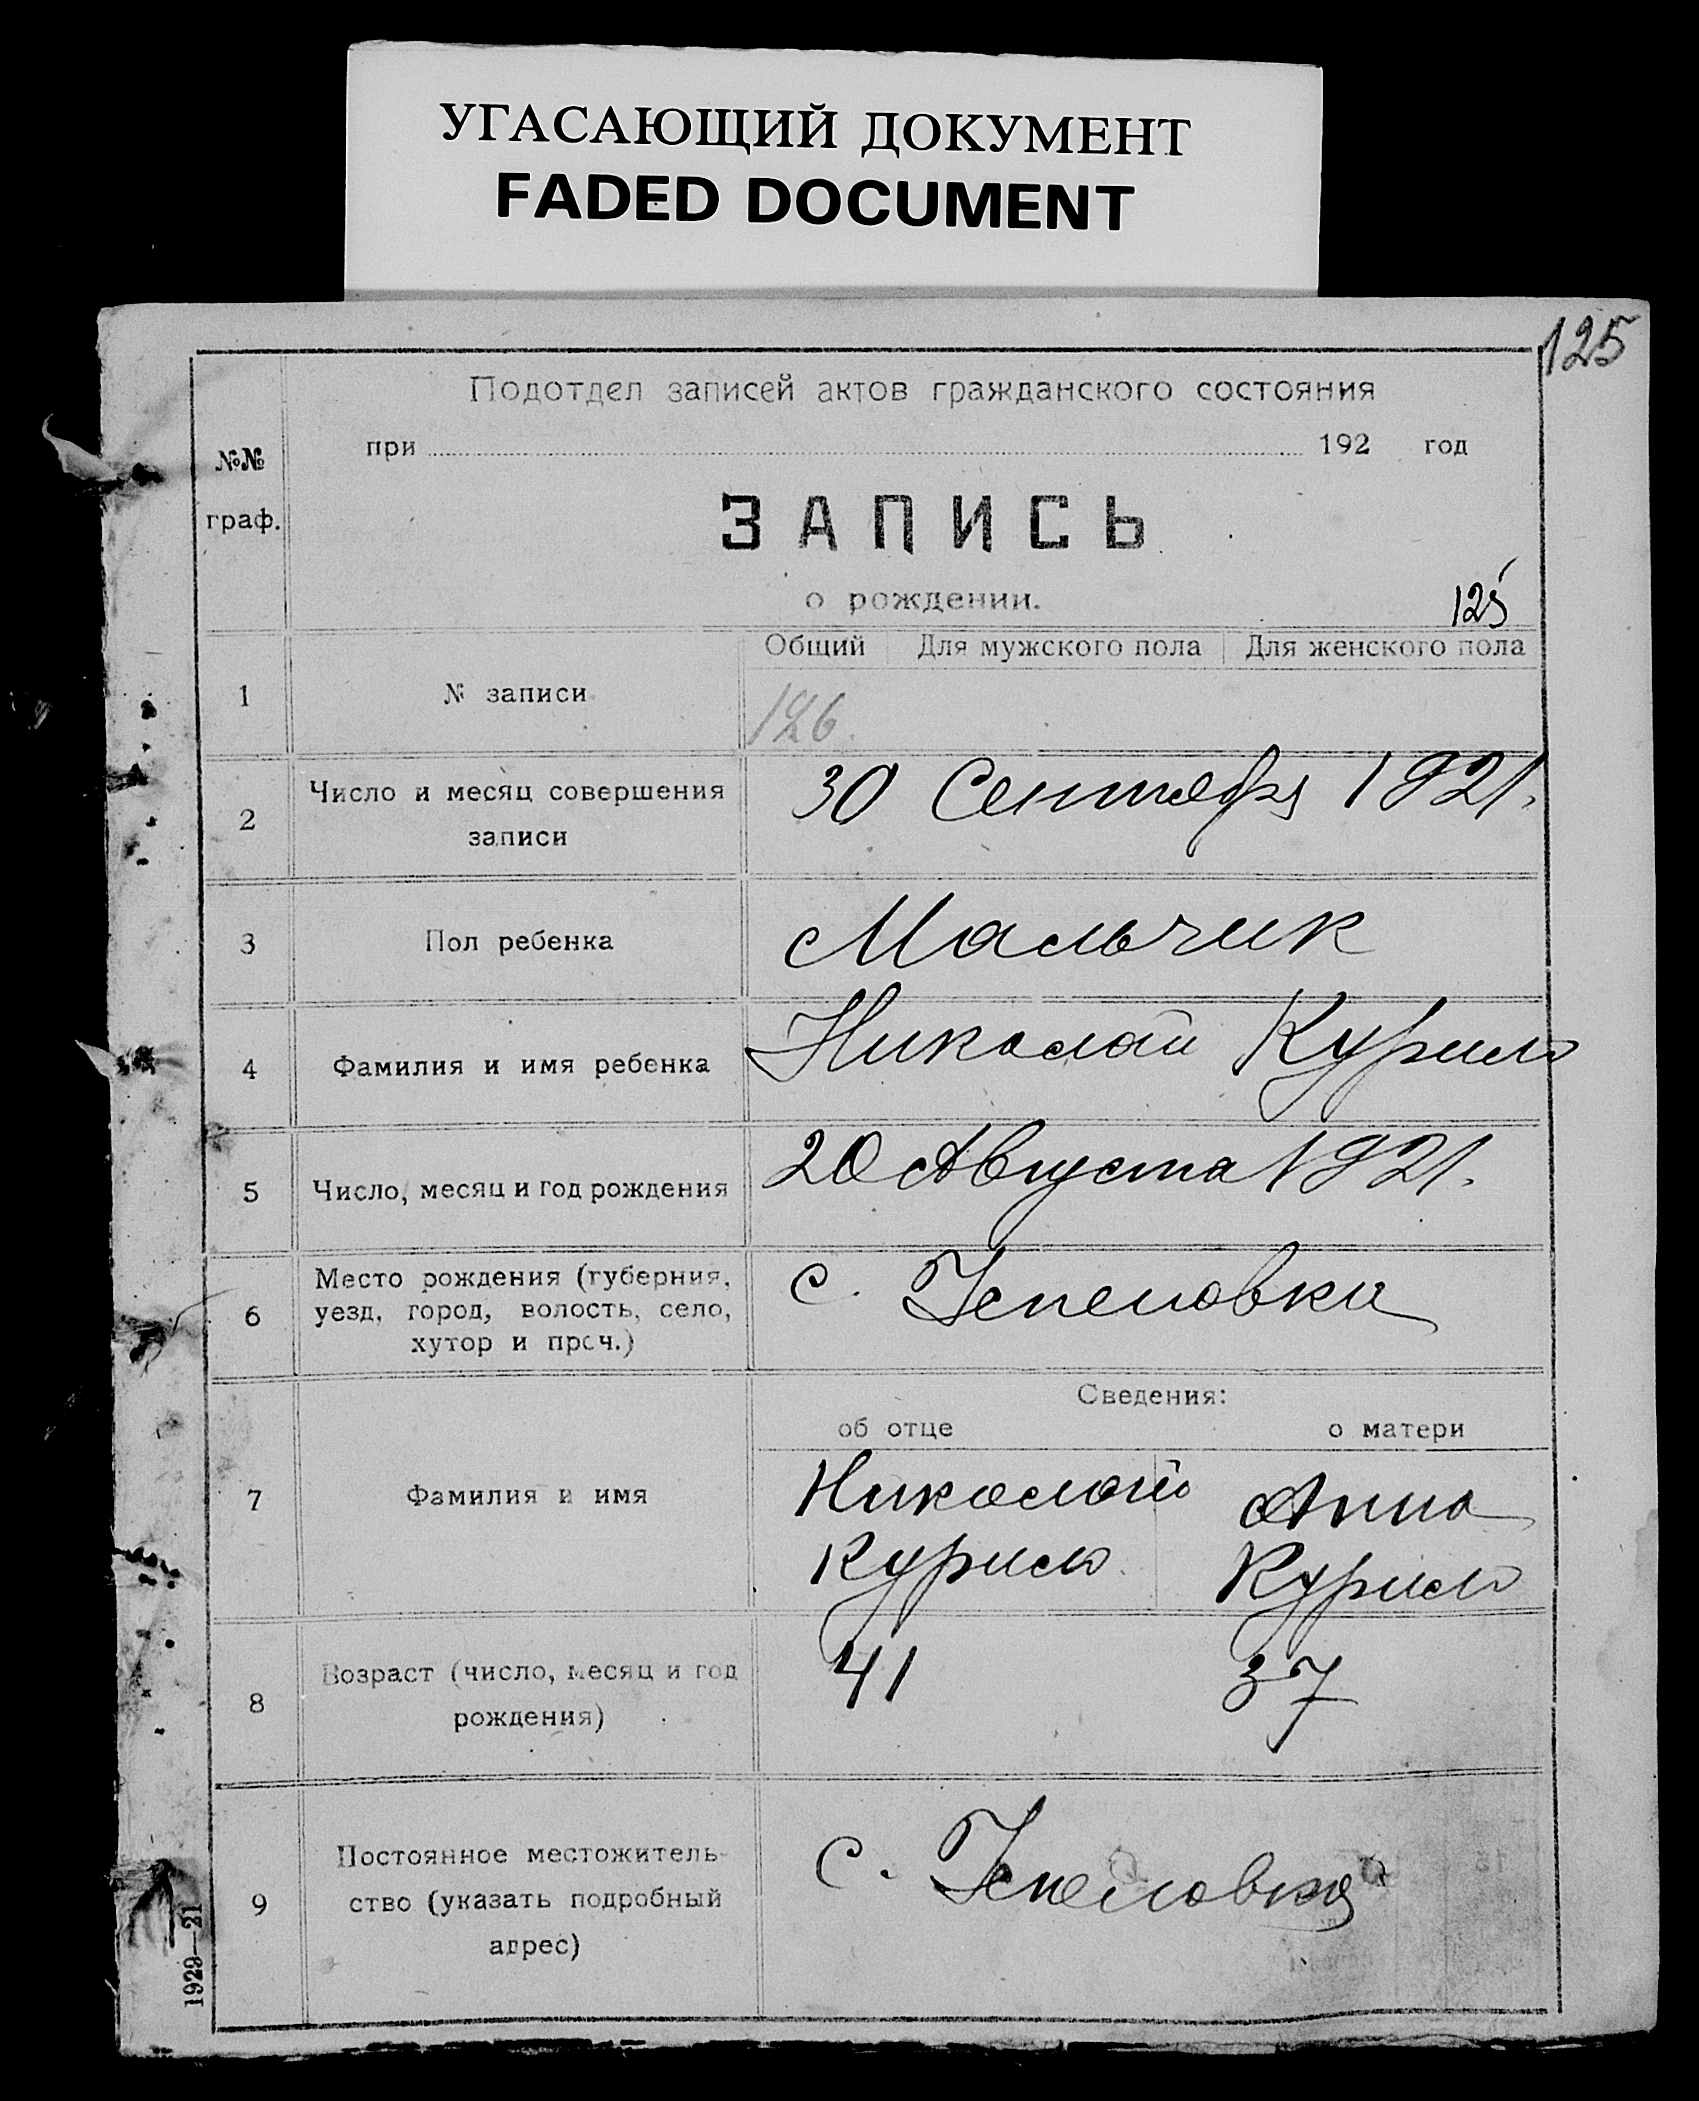 УГАСАЮЩИЙ ДОКУМЕНТ
FADED DOCUMENT
125
Подотдел записей актов гражданского состояния
№№
граф.
при 192 год
ЗАПИСЬ
о рождении.
125
Общий Для мужского пола Для женского пола
1 № записи 126.
2 Число и месяц совершения
записи
30 Сентября 1921.
3 Пол ребенка Мальчик
4 Фамилия и имя ребенка Николай Курило
5 Число, месяц и год рождения 20 Августа 1921.
6 Место рождения (губерния,
уезд, город, волость, село,
хутор и проч.)
с.
Сведения:
об отце о матери
7 Фамилия и имя
Николай Анна
Курило Курило
8 Возраст (число, месяц и год
рождения)
41 37
9 Постоянное местожитель-
ство (указать подробный
адрес)
с.
1929—21